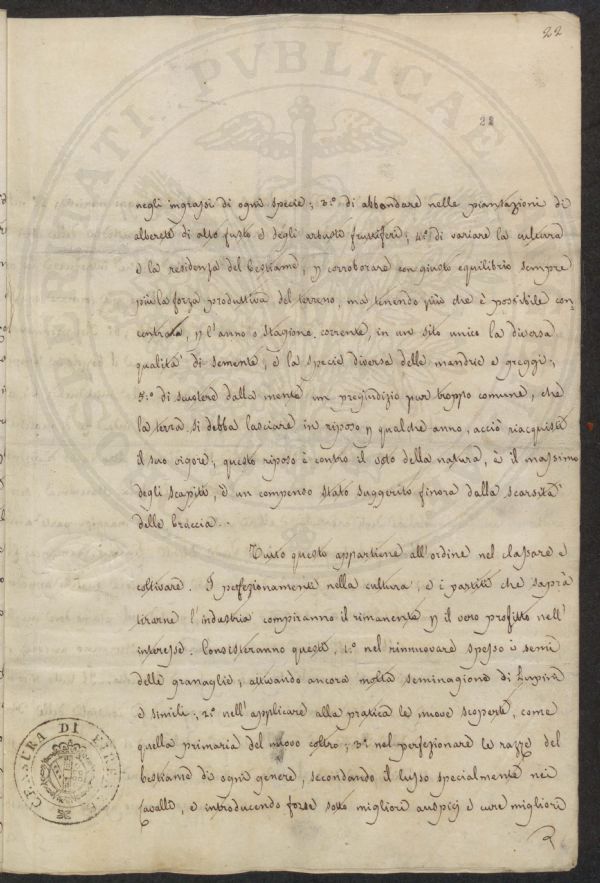 22
22
negli ingrassi di ogni specie; 3.° di abbondare nelle piantazioni di
alberete di alto fusto e degli arbusti fruttiferi; 4.° di variare la cultura
e la residenza del bestiame, p corroborare con giusto equilibrio sempre
più la forza produttiva del terreno, ma tenendo più che è possibile con-
centrata, p l'anno o stagione corrente, in un sito unico la diversa
qualità di semente, e la specie diversa delle mandrie e greggi;
5.° di scuotere dalla mente un pregiudizio pur troppo comune, che
la terra si debba lasciare in riposo p qualche anno, acciò riacquisti
il suo vigore; questo riposo è contro il voto della natura, è il massimo
degli scapiti, è un compenso stato suggerito finora dalla scarsità
delle braccia..
Tutto questo appartiene all'ordine nel classare e
coltivare. I perfezionamenti nella cultura, e i partiti che saprà
tirarne l'industria compiranno il rimanente p il vero profitto nell'
interesse. Consisteranno questi, 1.° nel rinnuovare spesso i semi
delle granaglie, attivando ancora molta seminagione di Lupini
e simili; 2.° nell'applicare alla pratica le nuove scoperte, come
quella primaria del nuovo coltro; 3.° nel perfezionare le razze del
bestiame di ogni genere, secondando il lusso specialmente nei
Cavalli, e introducendo forse sotto migliori auspicj e cure migliori
CENSURA DI
PUBLICAE